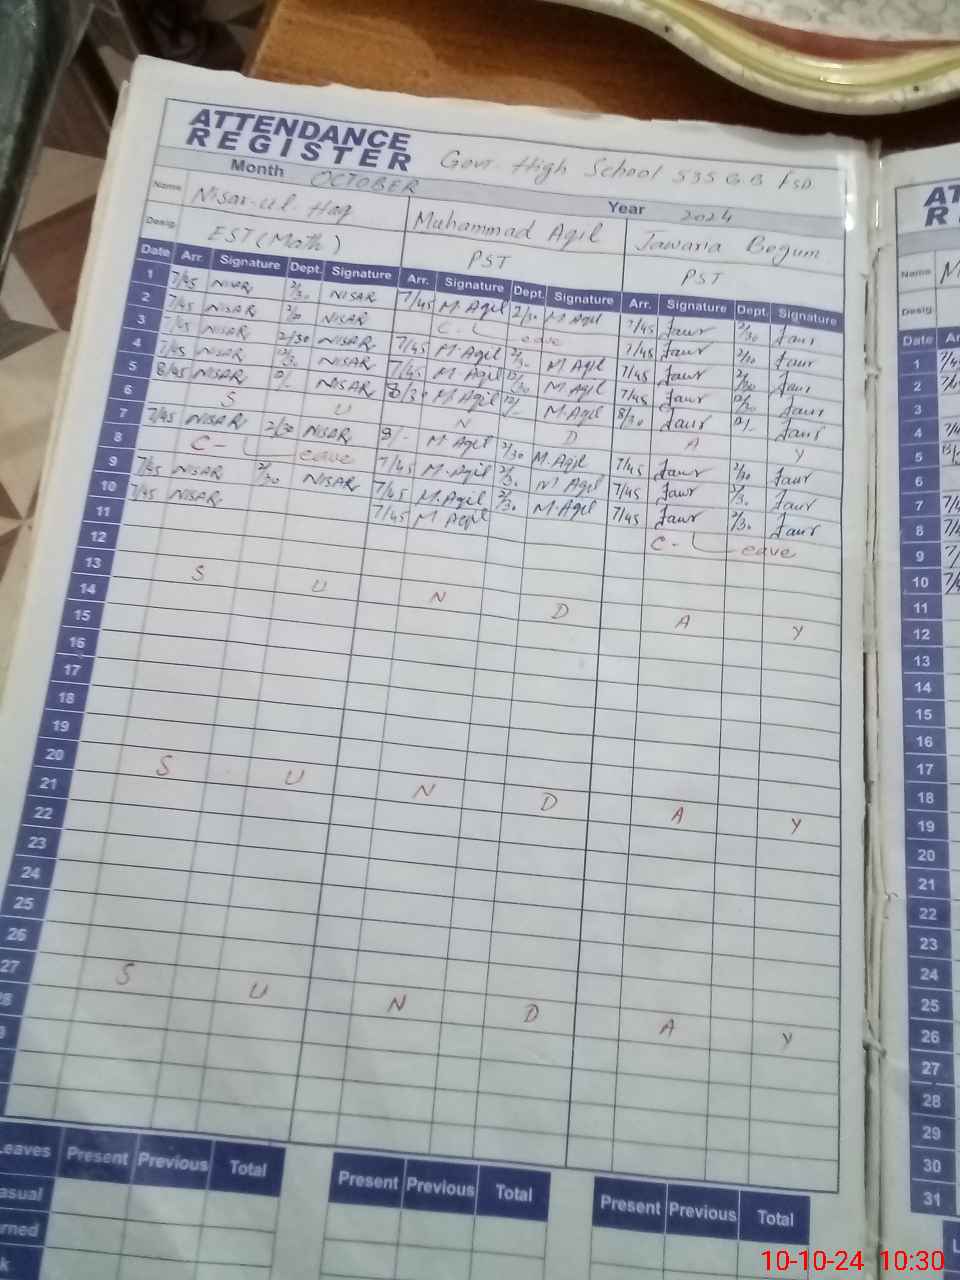 ATTENDANCE
REGISTER
Govt. High School 535 G.B FSD
Month OCTOBER
Year 2024
Name Nisar-ul-Haq Muhammad Aqil Jawaria Begum
Desig EST (Math) PST PST
Date Arr. Signature Dept. Signature Arr. Signature Dept. Signature Arr. Signature Dept. Signature
1 7/45 NISAR 2/30 NISAR 7/45 M.Aqil 2/30 M Aqil 7/45 2/30
2 7/45 NISAR 2/30 NISAR C-Leave 7/45 2/30
3 7/45 NISAR 2/30 NISAR 7/45 M.Aqil 2/30 M Aqil 7/45 2/30
4 7/45 NISAR NISAR 7/45 M.Aqil M Aqil 7/45
5 8/45 NISAR NISAR 8/30 M.Aqil 12/- M.Aqil 8/30
6 S U N D A Y
7 7/45 NISAR 2/30 NISAR 8/- M Aqil 2/30 M.Aqil 7/45 2/30
8 C-Leave 7/45 M.Aqil 2/30 M Aqil 7/45 2/30
9 7/45 NISAR 2/30 NISAR 7/45 M.Aqil 2/30 M.Aqil 7/45 2/30
10 7/45 NISAR 7/45 M Aqil C-Leave
11
12
13 S U N D A Y
14
15
16
17
18
19
20 S U N D A Y
21
22
23
24
25
26
27 S U N D A Y
28
Leaves Present Previous Total Present Previous Total Present Previous Total
Name
Desig
Date
1 7/4
2
3
4
5
6
7
8
9
10
11
12
13
14
15
16
17
18
19
20
21
22
23
24
25
26
27
28
29
30
31
10-10-24 10:30